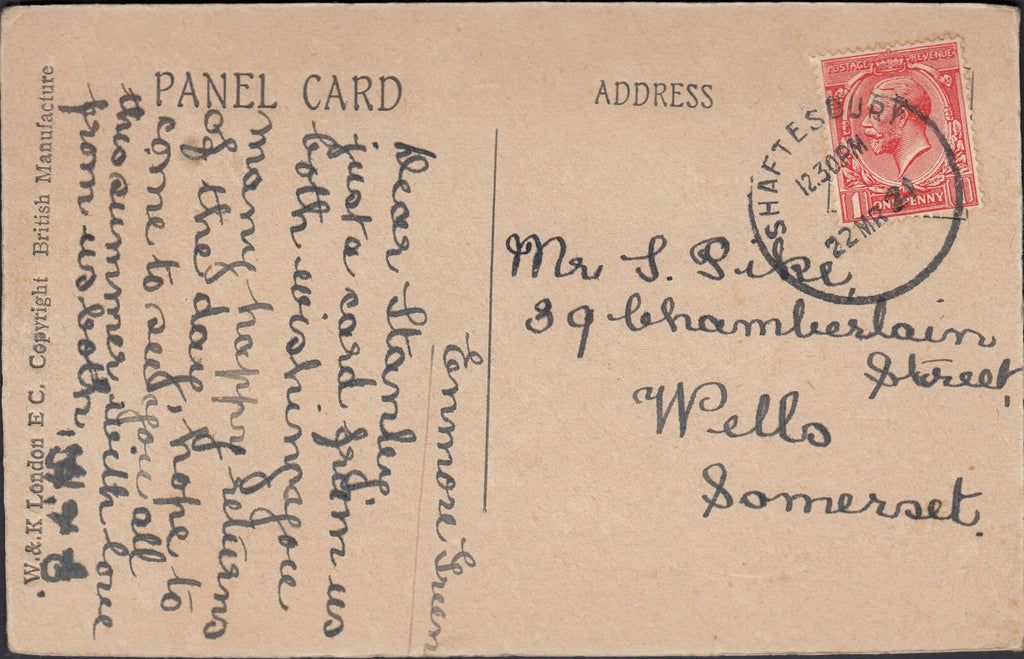 PANEL CARD
ADDRESS
POSTAGE REVENUE
ONE PENNY
SHAFTESBURY
12.30PM
22 MR 21
Mr S. Pike,
39 Chamberlain
Street,
Wells
Somerset.
Enmore Green
Dear Stanley,
just a card from us
both wishing you
many happy returns
of the day, hope to
come to see you all
this summer with love
from us both,
W.&.K London E C, Copyright British Manufacture